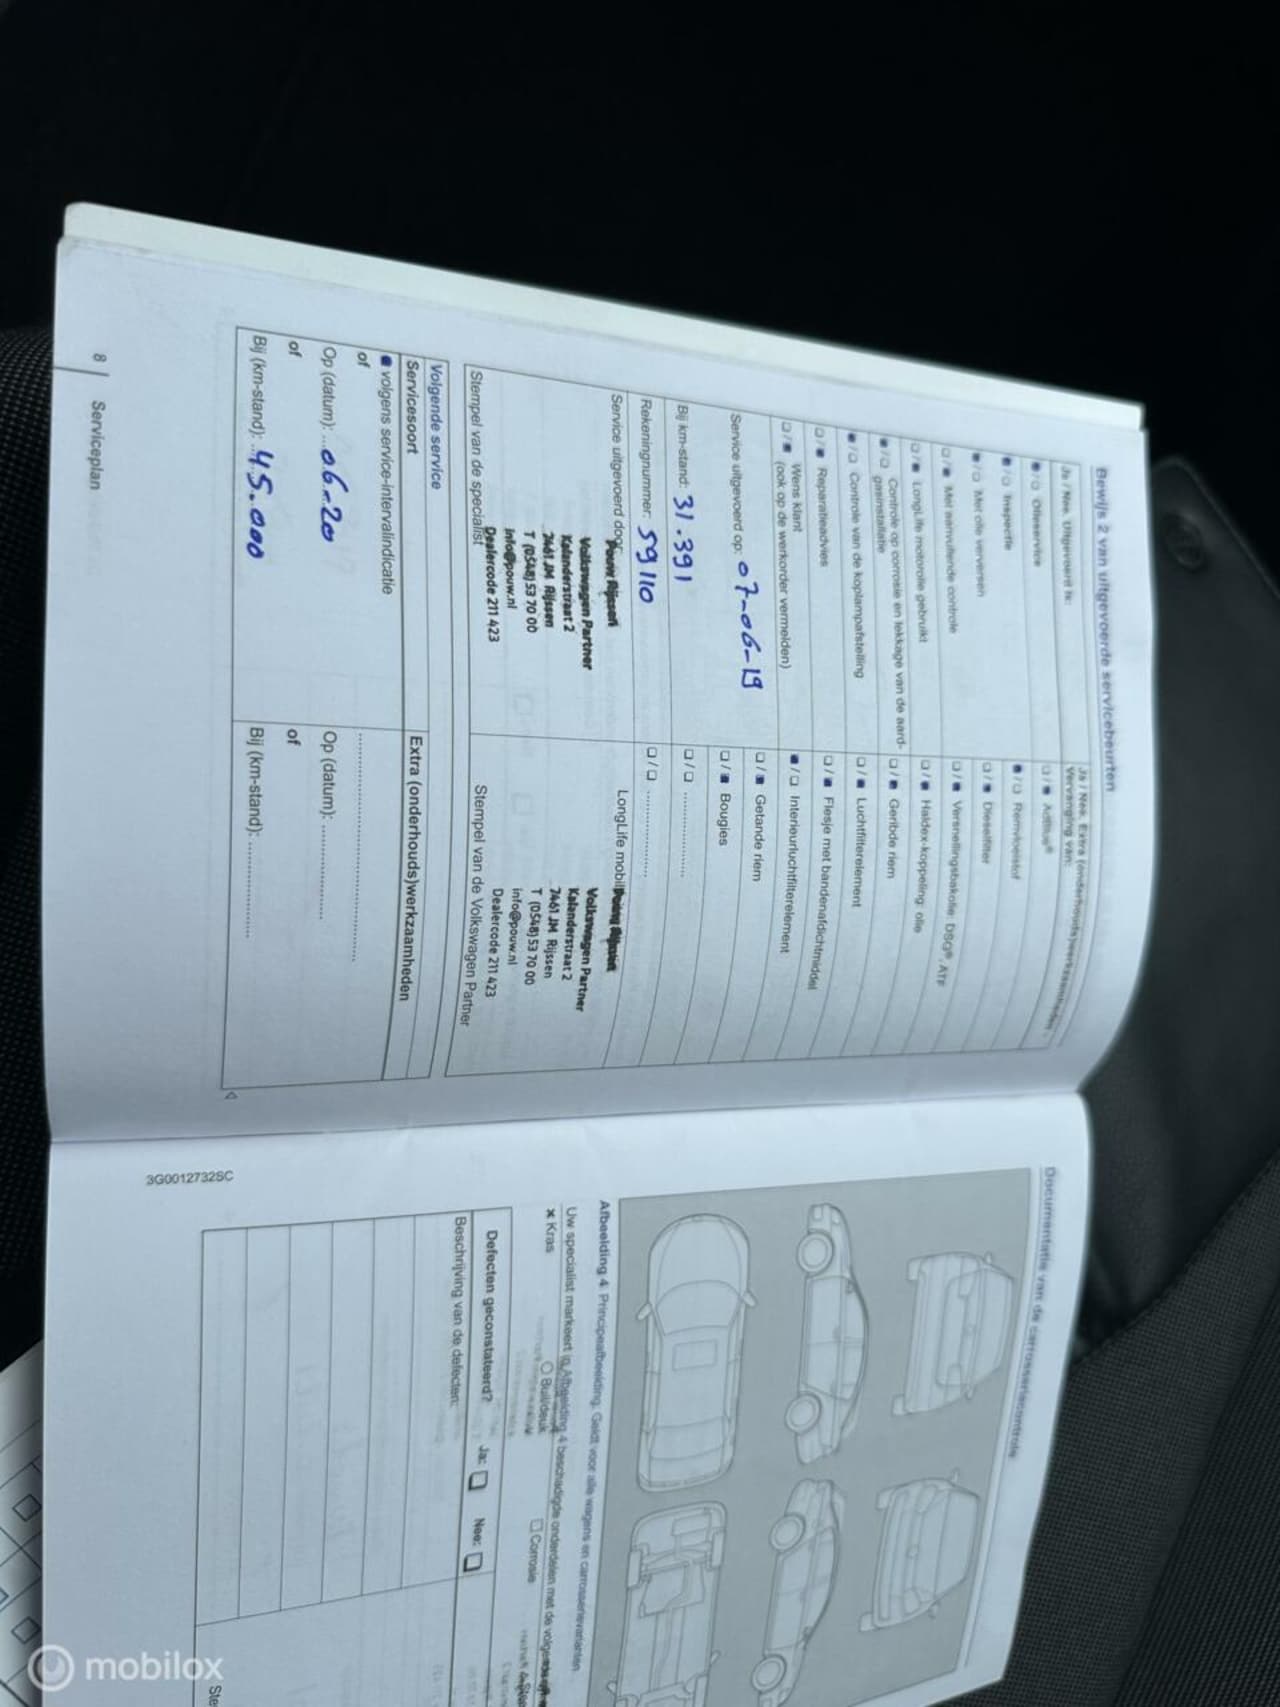 Bewijs 2 van uitgevoerde servicebeurten
Ja / Nee, Uitgevoerd is:
Olieservice
Inspectie
Met olie verversen
Met aanvullende controle
LongLife motorolie gebruikt
Controle op corrosie en lekkage van de aard-
gasinstallatie
Controle van de koplampafstelling
Reparatieadvies
Wens klant
(ook op de werkorder vermelden)
Service uitgevoerd op: 07-06-19
Bij km-stand: 31.391
Rekeningnummer: 59110
Service uitgevoerd door:
Pouw Rijssen
Volkswagen Partner
Kalanderstraat 2
7461 JM Rijssen
T (0548) 53 70 00
info@pouw.nl
Dealercode 211 423
Stempel van de specialist
Ja / Nee, Extra (onderhouds)werkzaamheden,
Vervanging van:
AdBlue®
Remvloeistof
Dieselfilter
Versnellingsbakolie: DSG®, ATF
Haldex-koppeling: olie
Geribde riem
Luchtfilterelement
Flesje met bandenafdichtmiddel
Interieurluchtfilterelement
Getande riem
Bougies
LongLife
Pouw Rijssen
Volkswagen Partner
Kalanderstraat 2
7461 JM Rijssen
T (0548) 53 70 00
info@pouw.nl
Dealercode 211 423
Stempel van de Volkswagen Partner
Volgende service
Servicesoort
volgens service-intervalindicatie
of
Op (datum): 06-20
of
Bij (km-stand): 45.000
Extra (onderhouds)werkzaamheden
Op (datum):
of
Bij (km-stand):
8 Serviceplan
Documentatie van de carrosseriecontrole
Afbeelding 4 Principeafbeelding: Geldt voor alle wagens en carrosserievarianten
Uw specialist markeert in Afbeelding 4 beschadigde onderdelen met de
Kras
Buil/deuk
Corrosie
Defecten geconstateerd? Ja: Nee:
Beschrijving van de defecten:
3G0012732SC
mobilox